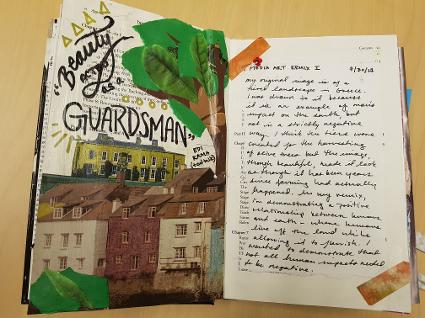 "Beauty
as a
GUARDSMAN"
EDI
RAMA
MEDIA ART REMIX I 9/30/18
my original image is of a
forest landscape in Greece.
I was drawn to it because
it is an example of man's
impact on the earth but
not in a strictly negative
way. I think the trees were
for the harvesting
of olive trees but the image,
though beautiful, made it look
as though it has been years
since farming had actually
happened. In my remix,
I'm demonstrating a positive
relationship between humans
and earth - where humans
live off the land while
allowing it to flourish. I
wanted to demonstrate that
not all human impacts need
to be negative.